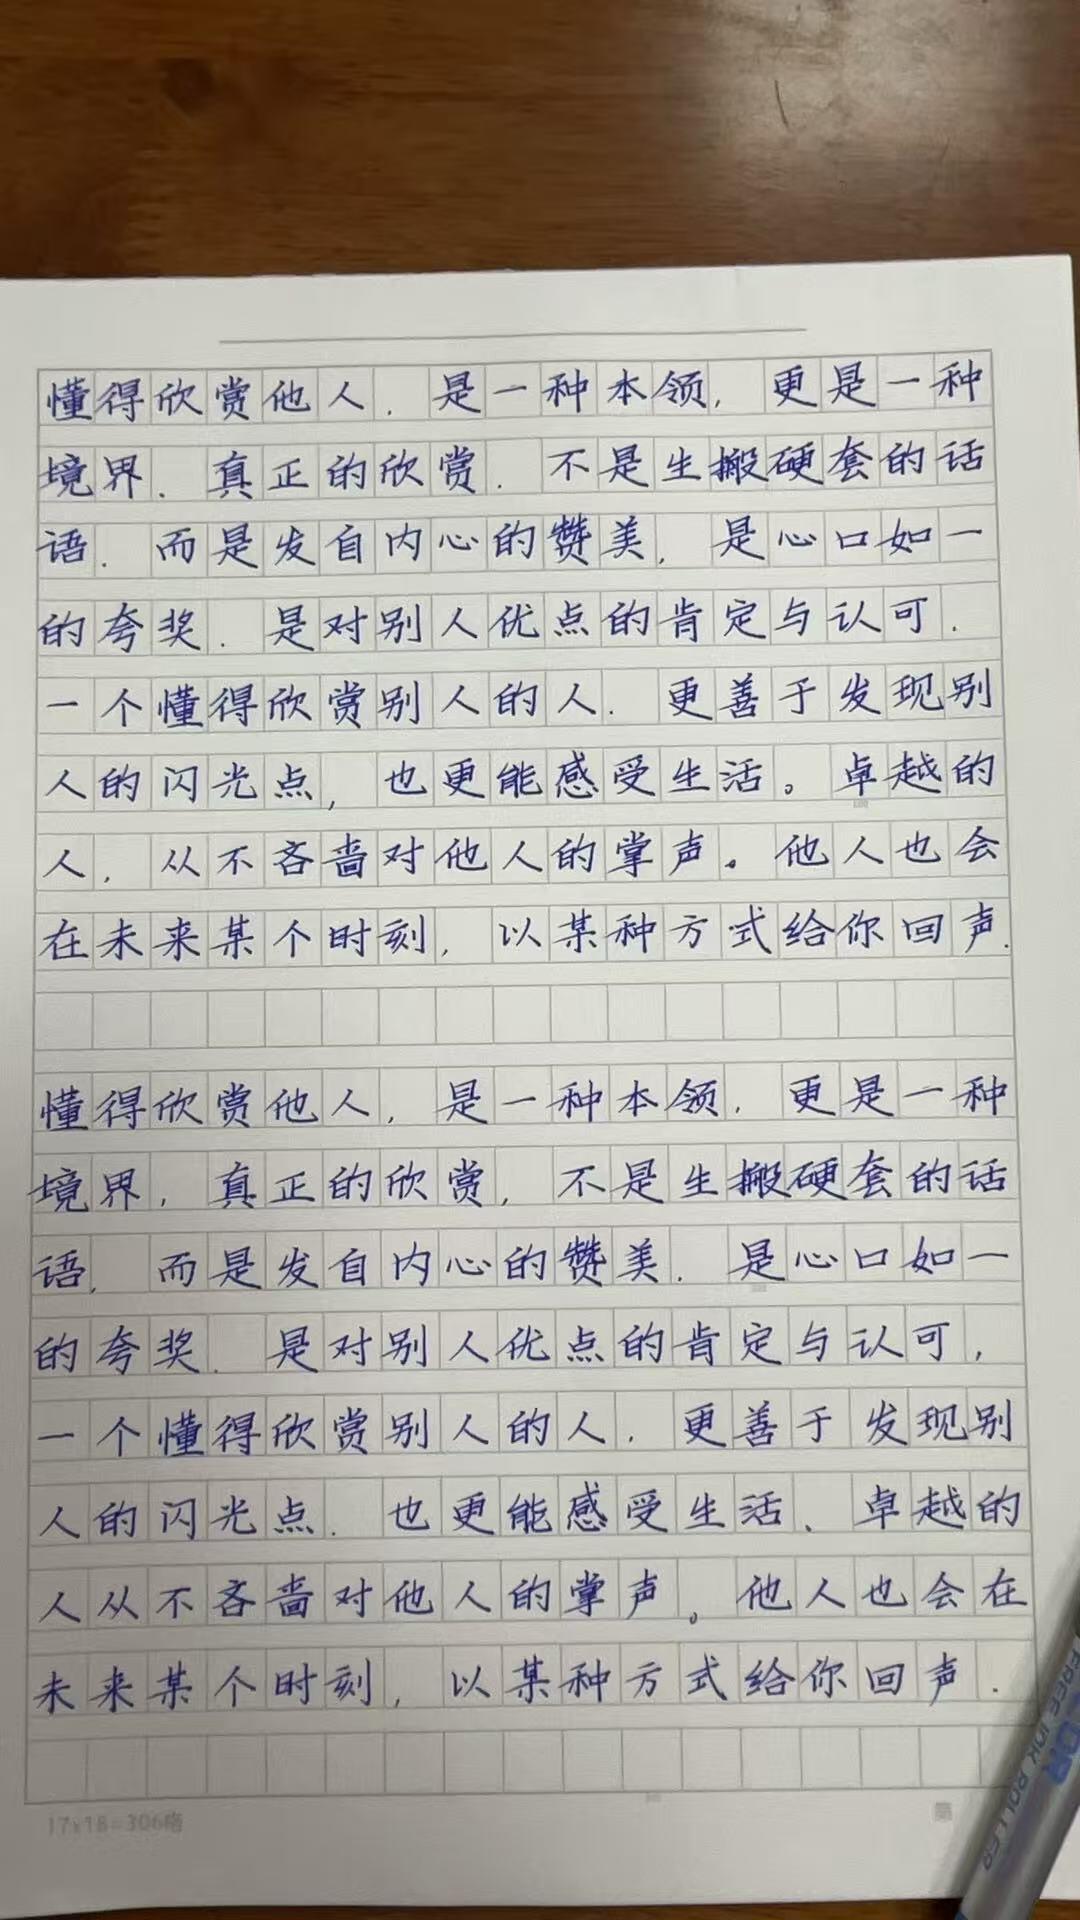 懂得欣赏他人.是一种本领,更是一种
境界.真正的欣赏.不是生搬硬套的话
语.而是发自内心的赞美,是心口如一
的夸奖.是对别人优点的肯定与认可.
一个懂得欣赏别人的人.更善于发现别
人的闪光点,也更能感受生活。卓越的
人,从不吝啬对他人的掌声。他人也会
在未来某个时刻,以某种方式给你回声.
懂得欣赏他人,是一种本领.更是一种
境界,真正的欣赏,不是生搬硬套的话
语.而是发自内心的赞美.是心口如一
的夸奖.是对别人优点的肯定与认可,
一个懂得欣赏别人的人.更善于发现别
人的闪光点.也更能感受生活、卓越的
人从不吝啬对他人的掌声。他人也会在
未来某个时刻,以某种方式给你回声.
17x18=306格
第
FREE INK ROLLER